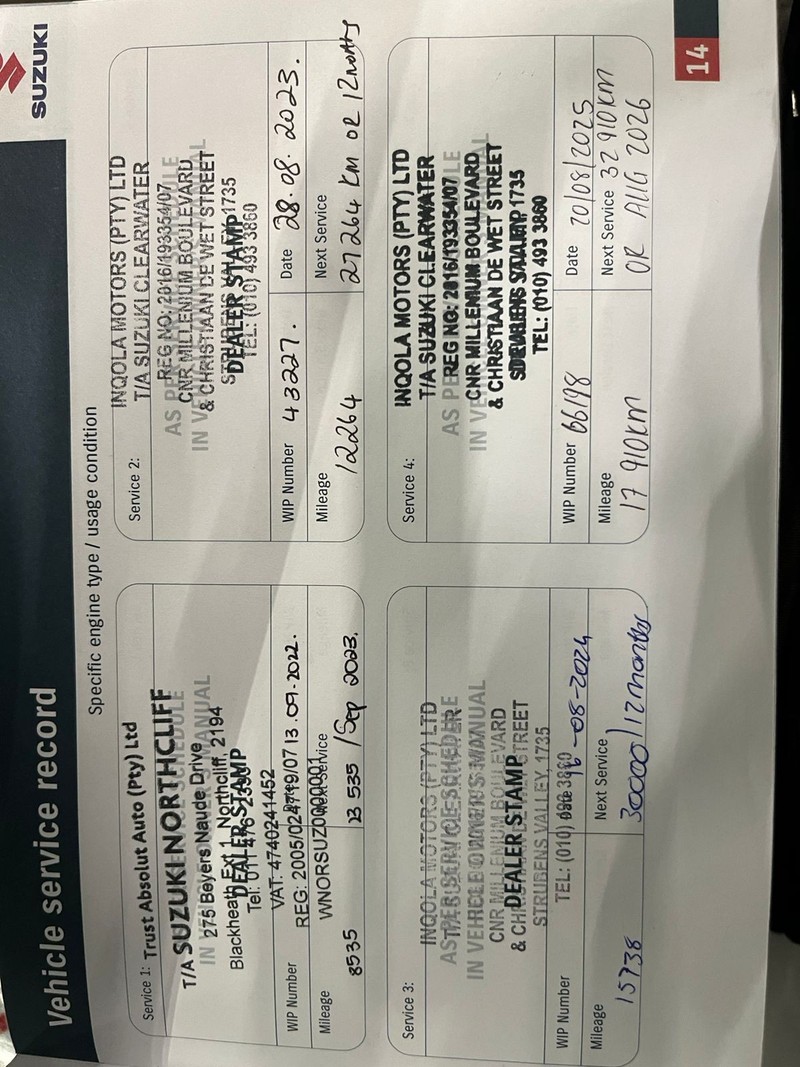 SUZUKI
Vehicle service record
Specific engine type / usage condition
Service 1: Trust Absolut Auto (Pty) Ltd
T/A SUZUKI NORTHCLIFF
IN VEHICLE OWNER'S MANUAL
275 Beyers Naude Drive
Blackheath Ext 1, Northcliff, 2194
DEALER STAMP
VAT: 4740241452
REG: 2005/024719/07 13.09.2022.
WIP Number
WNORSUZ0000001
Mileage
Next Service
8535
23 535 / Sep 2023.
Service 2:
INQOLA MOTORS (PTY) LTD
T/A SUZUKI CLEARWATER
REG NO: 2016/193354/07
CNR MILLENIUM BOULEVARD
& CHRISTIAAN DE WET STREET
DEALER STAMP
TEL: (010) 493 3860
WIP Number 43227.
Date 28.08.2023.
Mileage
Next Service
12264
27264 km OR 12 months
Service 3:
INQOLA MOTORS (PTY) LTD
AS PER SERVICE SCHEDULE
IN VEHICLE OWNER'S MANUAL
CNR MILLENIUM BOULEVARD
DEALER STAMP
STRUBENS VALLEY, 1735
TEL: (010) 493 3860
WIP Number
Date 16-08-2024
Mileage
Next Service
15738
30000/12 months
Service 4:
INQOLA MOTORS (PTY) LTD
T/A SUZUKI CLEARWATER
REG NO: 2016/193354/07
CNR MILLENIUM BOULEVARD
& CHRISTIAAN DE WET STREET
TEL: (010) 493 3860
WIP Number 66198
Date 20/08/2025
Mileage
Next Service 32 910KM
17 910KM
OR AUG 2026
14